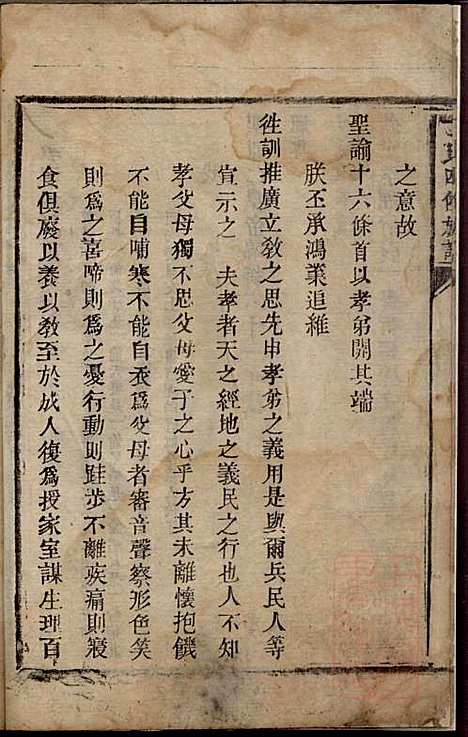 之意故
聖諭十六條首以孝弟開其端
朕丕承鴻業追維
徃訓推廣立敎之思先申孝弟之義用是與爾兵民人等
宣示之 夫孝者天之經地之義民之行也人不知
孝父母獨不思父母愛子之心乎方其未離懷抱饑
不能自哺寒不能自衣爲父母者審音聲察形色笑
則爲之喜啼則爲之憂行動則跬步不離疾痛則寢
食俱廢以養以敎至於成人復爲授家室謀生理百